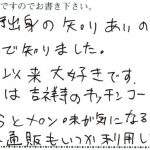 ですのでお書き下さい。
出身の知りあいの
で知りました。
以来大好きです。
は吉祥寺のキッチンコー
Sとメロン味が気になる
通販もいつか利用し